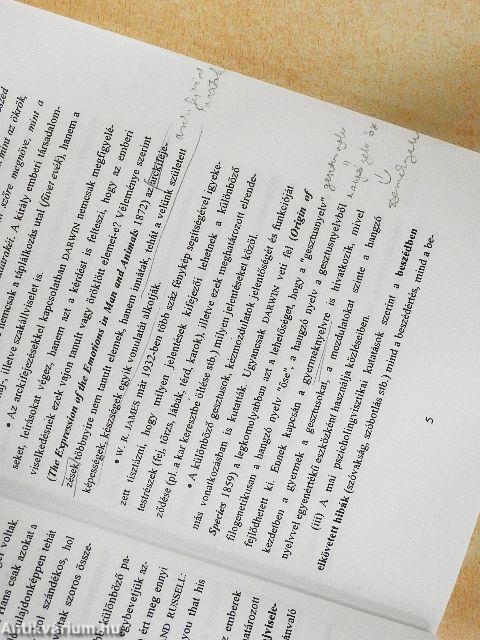 nemcsak a táplálkozás utal (füvet evék), hanem a
illetve szakállviselet is.
• Az arckifejezésekkel kapcsolatban DARWIN nemcsak megfigyelé-
seket, leírásokat végez, hanem azt a kérdést is felteszi, hogy az emberi
viselkedésnek ezek vajon tanult vagy öröklött elemei-e? Véleménye szerint
(The Expression of the Emotions in Man and Animals 1872) az arckifeje-
zések többnyire nem tanult elemek, hanem innáták, tehát a velünk született
képességek, készségek egyik vonulatát alkotják.
• W. R. JAMES már 1932-ben több száz fénykép segítségével igyeke-
zett tisztázni, hogy milyen jelentések kifejezői lehetnek a különböző
testrészek (fej, törzs, lábak, térd, karok), illetve ezek meghatározott elrende-
ződése (pl. a kar keresztbe öltése stb.) milyen jelentéseket közöl.
• A különböző gesztusok, kézmozdulatok jelentőségét és funkcióját
más vonatkozásban is kutatták. Ugyancsak DARWIN veti fel (Origin of
Species 1859) a legkomolyabban azt a lehetőséget, hogy a "gesztusnyelv"
filogenetikusan a hangzó nyelv "őse", a hangzó nyelv a gesztusnyelvből
fejlődhetett ki. Ennek kapcsán a gyermeknyelvre is hivatkozik, mivel
kezdetben a gyermek a gesztusokat, a mozdulatokat szinte a hangzó
nyelvvel egyenértékű eszközként használja közléseiben.
(iii) A mai pszicholingvisztikai kutatások szerint a beszédben
elkövetett hibák (szóvakság, szóbotlás stb.) mind a beszédértés, mind a be-
5
voltak.
Hans csak azokat a
tulajdonképpen tehát
szándékos, hol
voltak szoros össze-
különböző pa-
egybevetjük az-
ért meg ennyi
AND RUSSELL:
you that his
az emberek
Antikvárium.hu